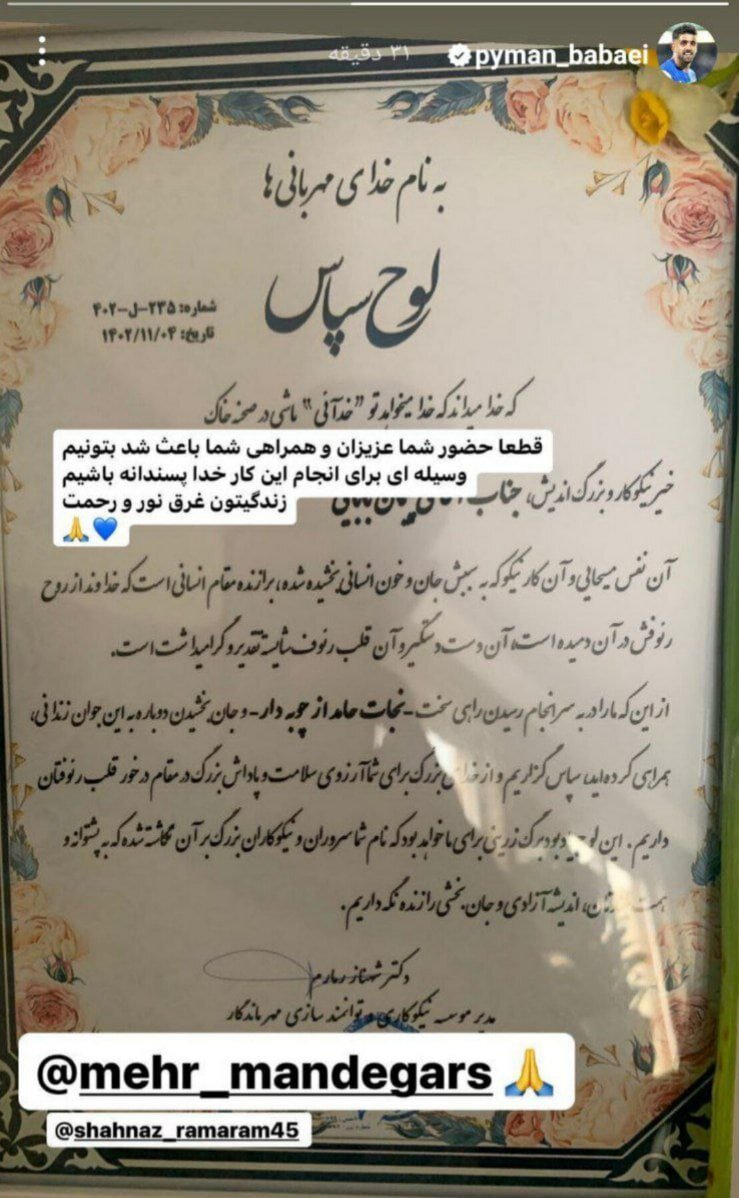 pyman_babaei ۳۱ دقیقه
به نام خدای مهربانی ها
لوح سپاس
شماره: ۲۳۵-ل-۴۰۲
تاریخ: ۱۴۰۲/۱۱/۰۴
که خدا میداند که خدا میخواهد تو "خدآئی" باشی در صحنه خاک
قطعا حضور شما عزیزان و همراهی شما باعث شد بتونیم
وسیله ای برای انجام این کار خدا پسندانه باشیم
زندگیتون غرق نور و رحمت
🙏💙
خیر نیکوکار و بزرگ اندیش، جناب
آن نفس مسیحایی و آن کار نیکو که به سببش جان و خون انسانی بخشیده شده، برازنده مقام انسانی است که خداوند از روح
رئوفش در آن دمیده است، آن دست دستگیر و آن قلب رئوف شایسته تقدیر و گرامیداشت است.
از این که ما را در به سرانجام رسیدن راهی سخت-نجات حامد از چوبه دار- و جان بخشیدن دوباره به این جوان زندانی،
همراهی کرده اید، سپاس گزاریم و از خدای بزرگ برای شما آرزوی سلامت و پاداش بزرگ در مقام در خور قلب رئوفتان
داریم. این لوح یادبود برگ زرینی برای ما خواهد بود که نام شما سروران و نیکوکاران بزرگ بر آن نگاشته شده که به پشتوانه و
همت اندیشه آزادی و جان بخشی را زنده نگه داریم.
دکتر شهناز رمارم
مدیر موسسه نیکوکاری و توانمند سازی مهر ماندگار
@mehr_mandegars 🙏
@shahnaz_ramaram45